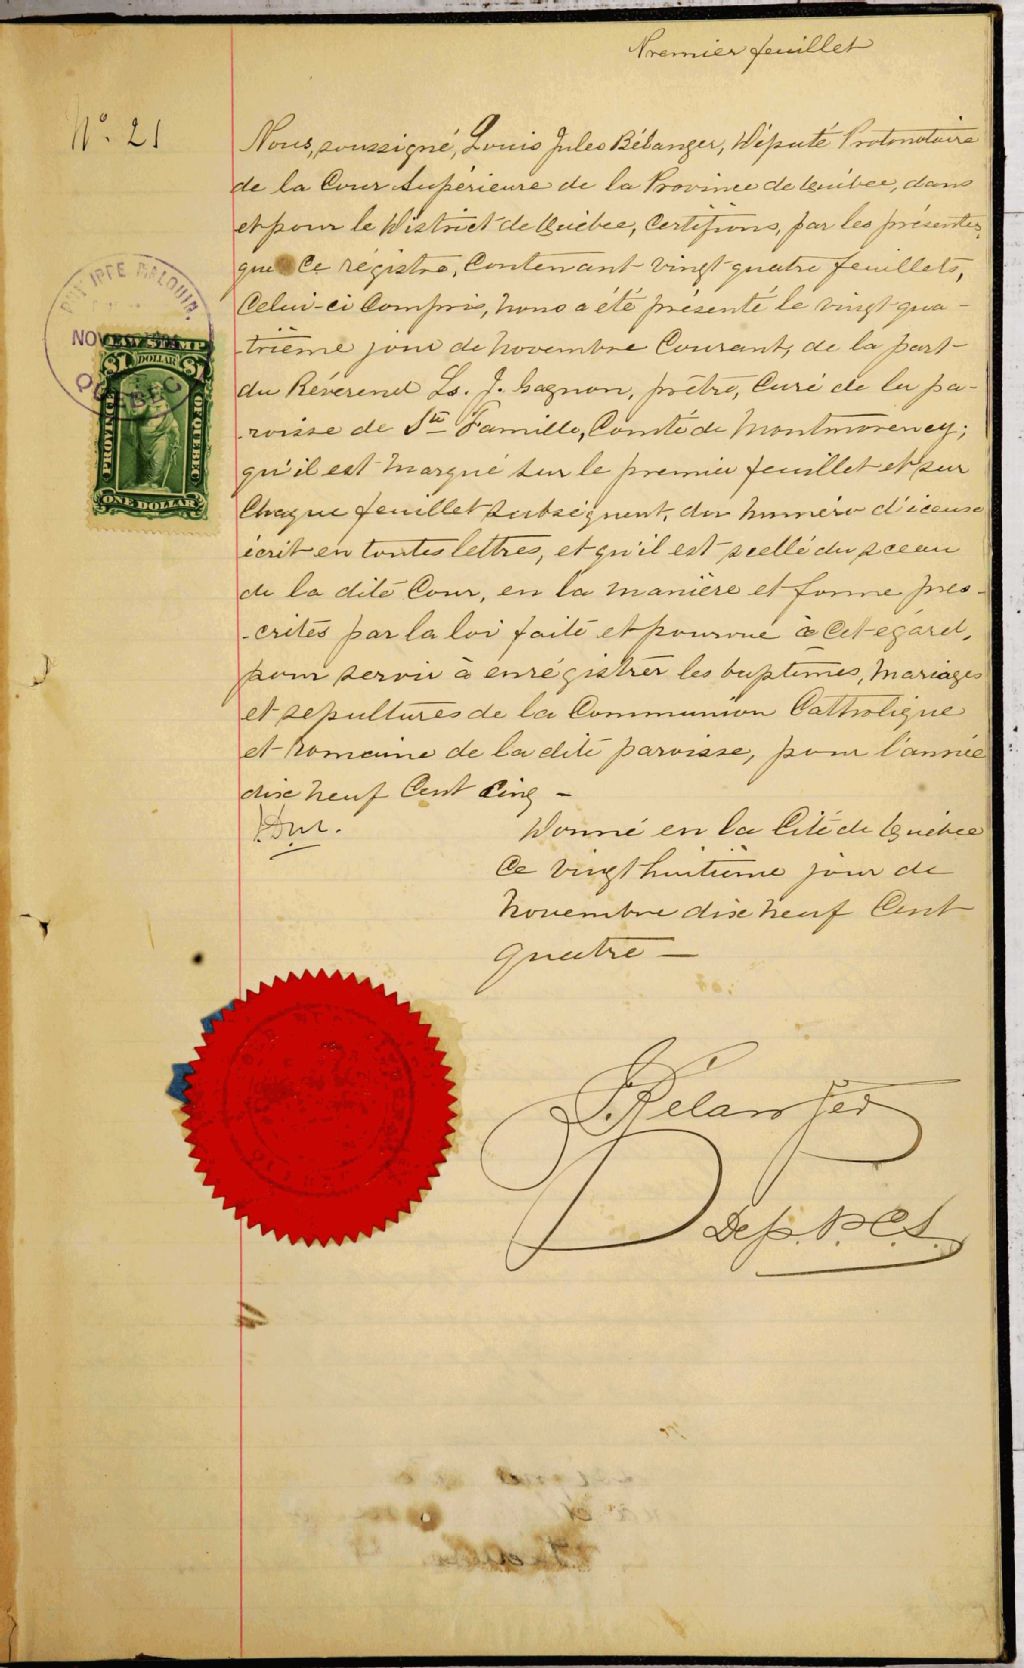 Premier feuillet
N° 21
Nous, soussigné, Louis Jules Bélanger, Député Protonotaire
de la Cour Supérieure de la Province de Québec, dans
et pour le District de Québec, Certifions, par les présentes,
que Ce régistre, Contenant vingt quatre feuillets,
Celui-ci Compris, nous a été présenté le vingt-qua-
-trième jour de novembre Courant, de la part
du Révérend Ls. J. Gagnon, prêtre, Curé de la pa-
-roisse de Ste Famille, Comté de Montmorency;
qu'il est marqué sur le premier feuillet et sur
Chaque feuillet subséquent, du numéro d'iceux
écrit en toutes lettres, et qu'il est scellé du sceau
de la dite Cour, en la manière et forme pres-
-crites par la loi faite et pourvue à Cet égard,
pour servir à enrégistrer les baptêmes, Mariages
et sépultures de la Communion Catholique
et romaine de la dite paroisse, pour l'année
dix neuf Cent Cinq -
Donné en la Cité de Québec
Ce vingt huitième jour de
Novembre dix neuf Cent
quatre —
Bélanger
Dep. P. C. S.
MALOUIN.
NOV
QUEBEC
LAW STAMP
$1 DOLLAR $1
PROVINCE OF QUEBEC
ONE DOLLAR